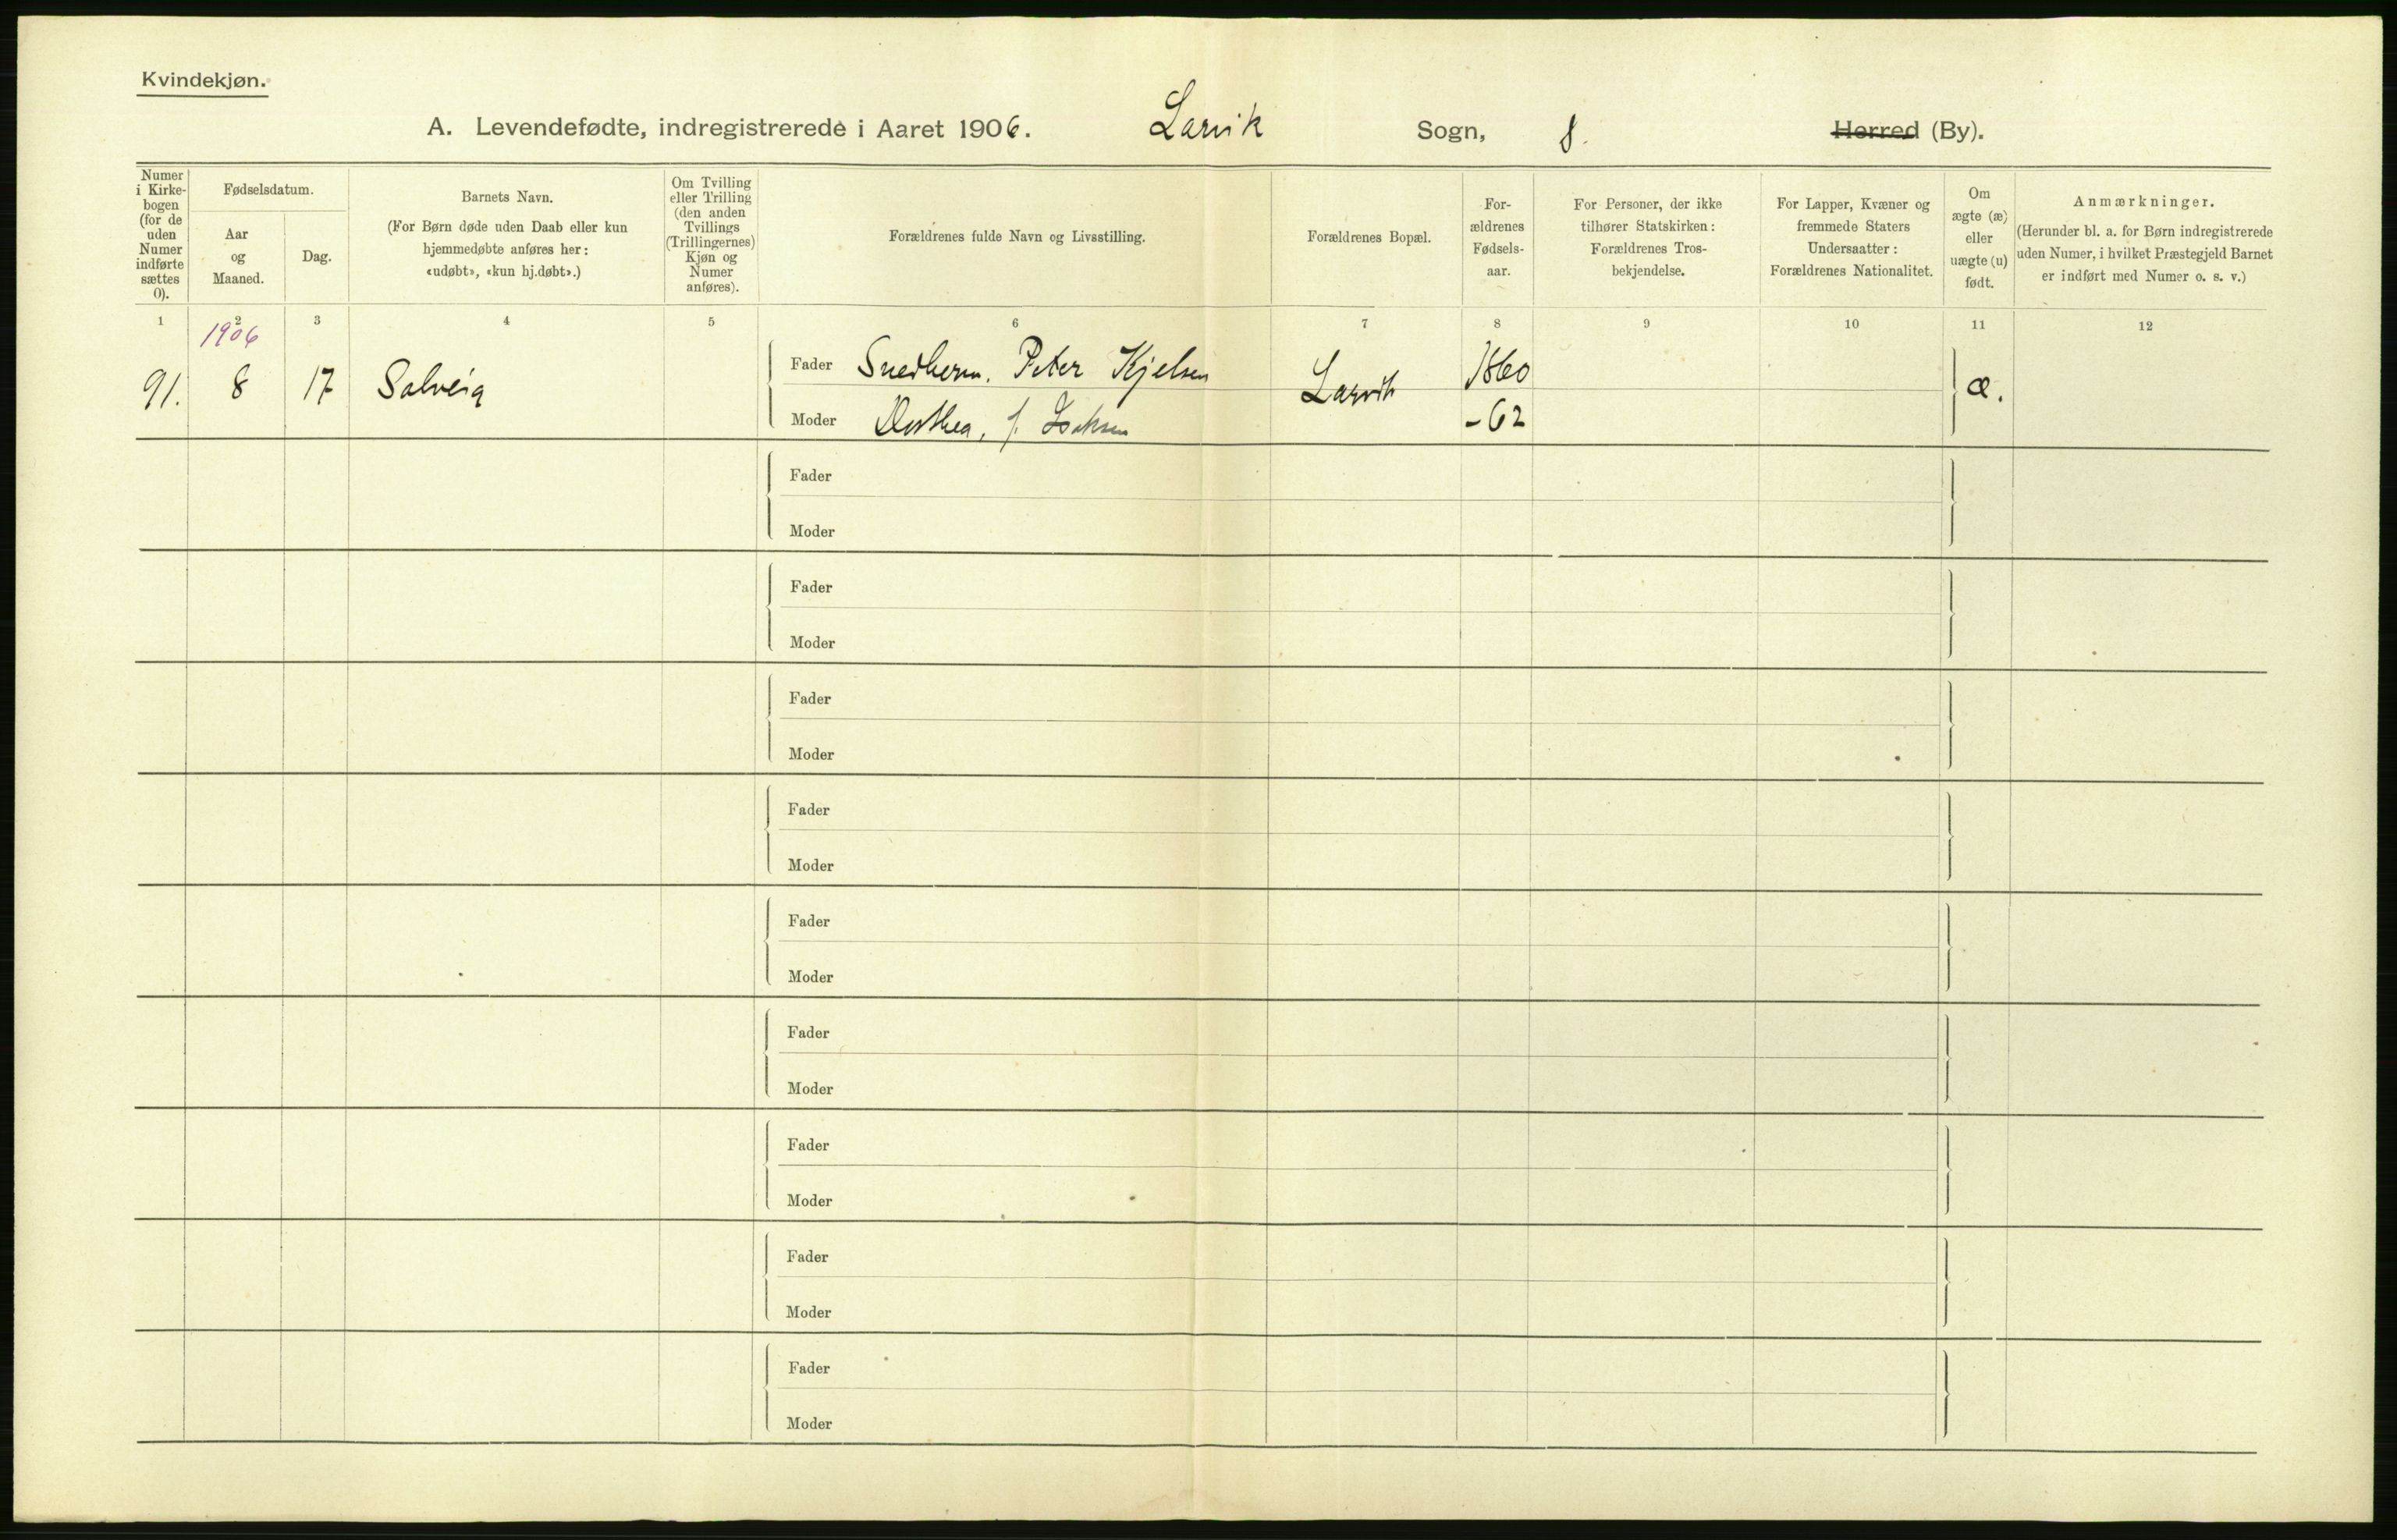 Kvindekjøn.
A. Levendefødte, indregistrerede i Aaret 1906. Larvik Sogn, 8. Herred (By).
Numer i Kirkebogen (for de uden Numer indførte sættes 0).
Fødselsdatum.
Aar og Maaned.
Dag.
Barnets Navn.
(For Børn døde uden Daab eller kun
hjemmedøbte anføres her:
«udøbt», «kun hj.døbt».)
Om Tvilling
eller Trilling
(den anden
Tvillings
(Trillingernes)
Kjøn og
Numer
anføres).
Forældrenes fulde Navn og Livsstilling.
Forældrenes Bopæl.
For-
ældrenes
Fødsels-
aar.
For Personer, der ikke
tilhører Statskirken:
Forældrenes Tros-
bekjendelse.
For Lapper, Kvæner og
fremmede Staters
Undersaatter:
Forældrenes Nationalitet.
Om
ægte (æ)
eller
uægte (u)
født.
Anmærkninger.
(Herunder bl. a. for Børn indregistrerede
uden Numer, i hvilket Præstegjeld Barnet
er indført med Numer o. s. v.)
1 2 3 4 5 6 7 8 9 10 11 12
1906
91. 8 17 Solveig Fader Snedkerm. Peter Kjelsen Larvik 1860 æ.
Moder Dorthea, f. -62
Fader
Moder
Fader
Moder
Fader
Moder
Fader
Moder
Fader
Moder
Fader
Moder
Fader
Moder
Fader
Moder
Fader
Moder